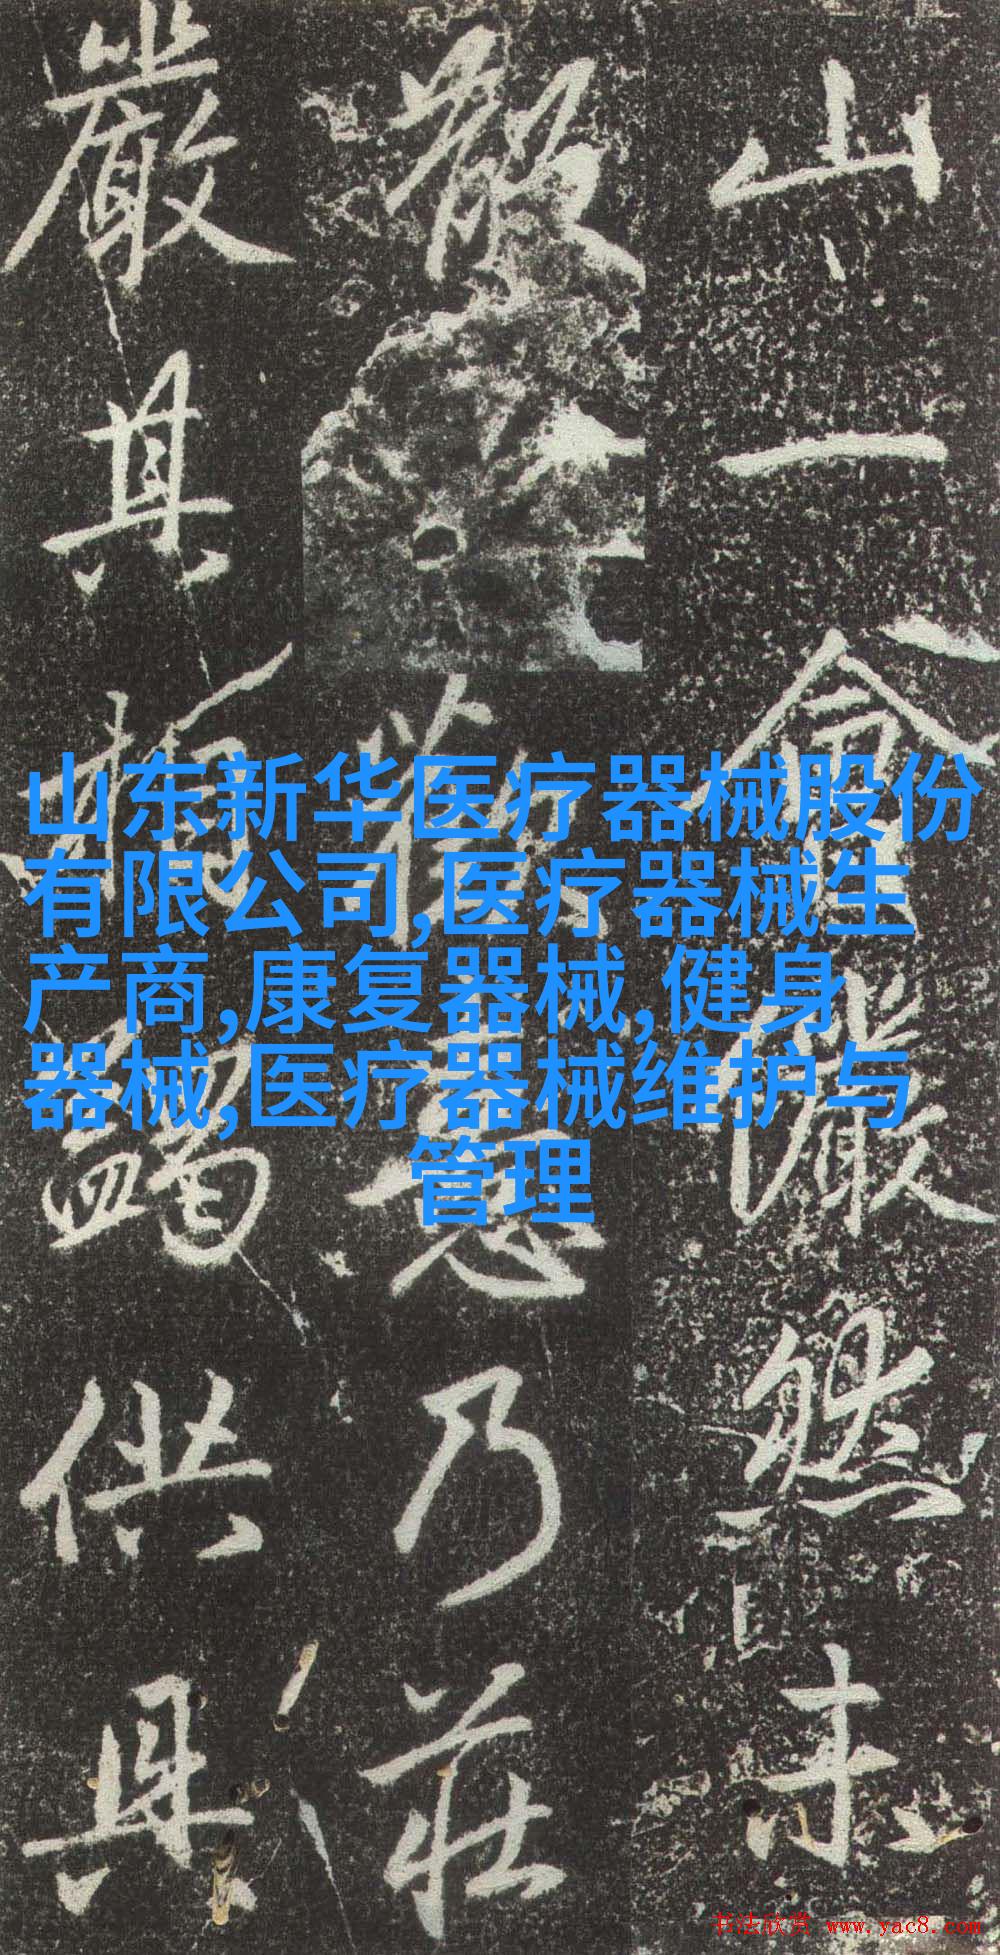 山东新华医疗器械股份
有限公司,医疗器械生
产商,康复器械,健身
器械,医疗器械维护与
管理
山一會儼然未
散意乃莊
嚴其供具
书法欣赏 www.yac8.com